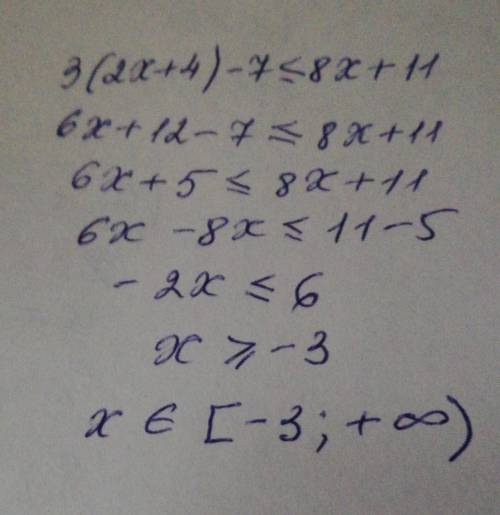 3(2x+4)-7≤8x+11
6x+12-7≤8x+11
6x+5≤8x+11
6x-8x≤11-5
-2x≤6
x≥-3
x∈[-3;+∞)